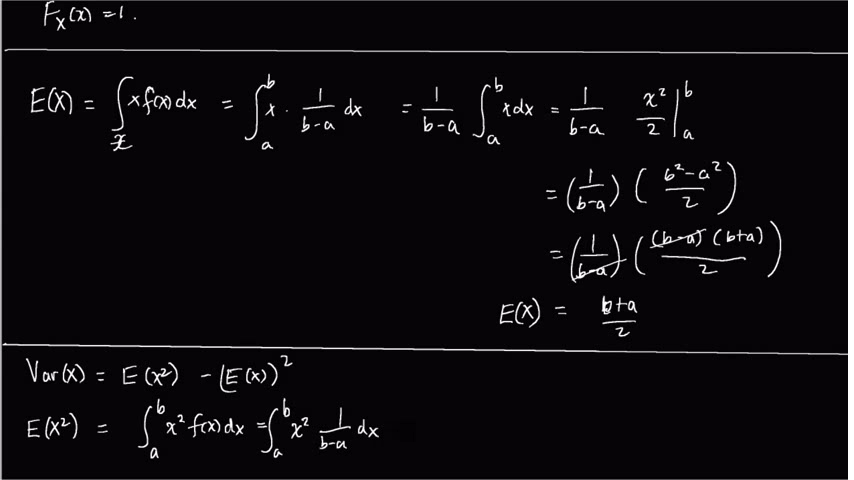 F_X(x) = 1.
E(X) = ∫_𝒳 x f(x) dx = ∫_a^b x · 1/(b-a) dx = 1/(b-a) ∫_a^b x dx = 1/(b-a) x²/2 |_a^b
= (1/(b-a)) ((b²-a²)/2)
= (1/(b-a)) ((b-a)(b+a)/2)
E(X) = (b+a)/2
Var(X) = E(X²) - (E(X))²
E(X²) = ∫_a^b x² f(x) dx = ∫_a^b x² 1/(b-a) dx